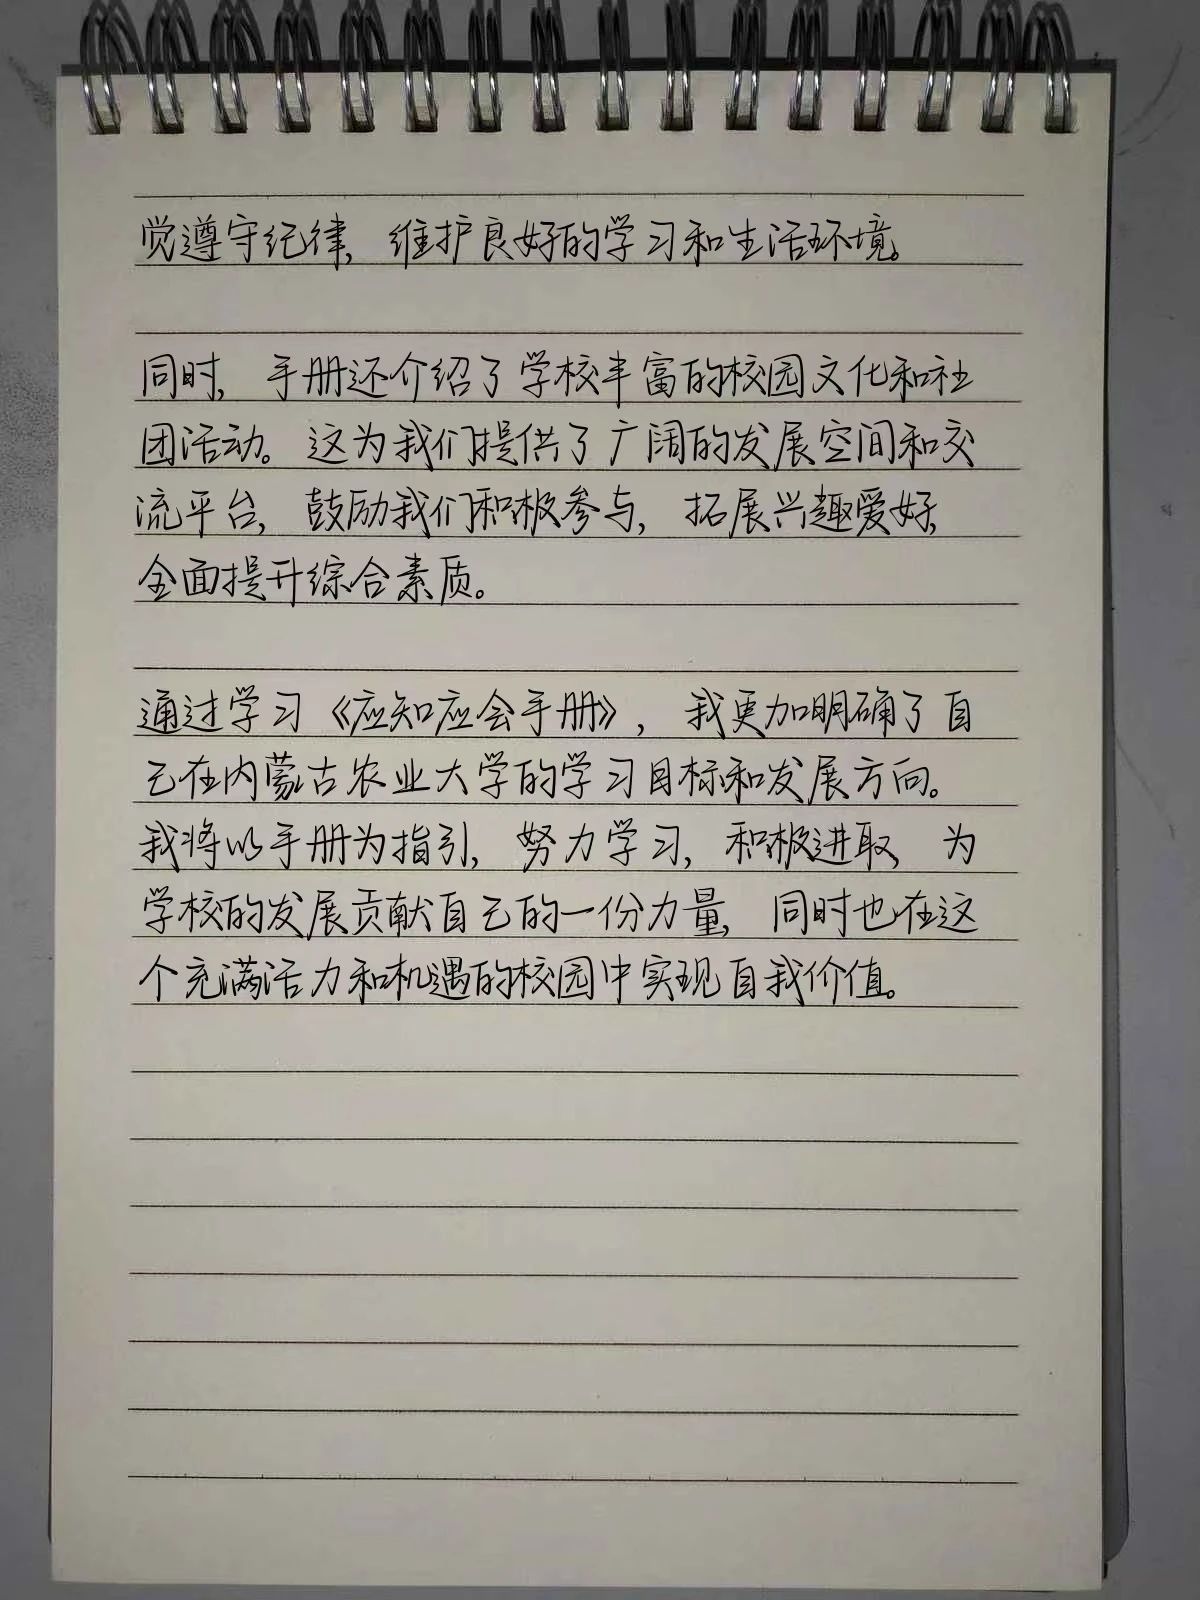 觉遵守纪律，维护良好的学习和生活环境。
同时，手册还介绍了学校丰富的校园文化和社
团活动。这为我们提供了广阔的发展空间和交
流平台，鼓励我们积极参与，拓展兴趣爱好，
全面提升综合素质。
通过学习《应知应会手册》，我更加明确了自
己在内蒙古农业大学的学习目标和发展方向。
我将以手册为指引，努力学习，积极进取，为
学校的发展贡献自己的一份力量，同时也在这
个充满活力和机遇的校园中实现自我价值。